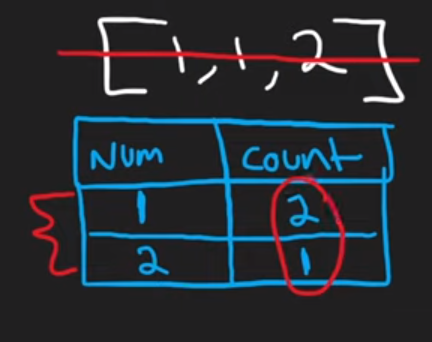 [1, 1, 2]
Num Count
1 2
2 1